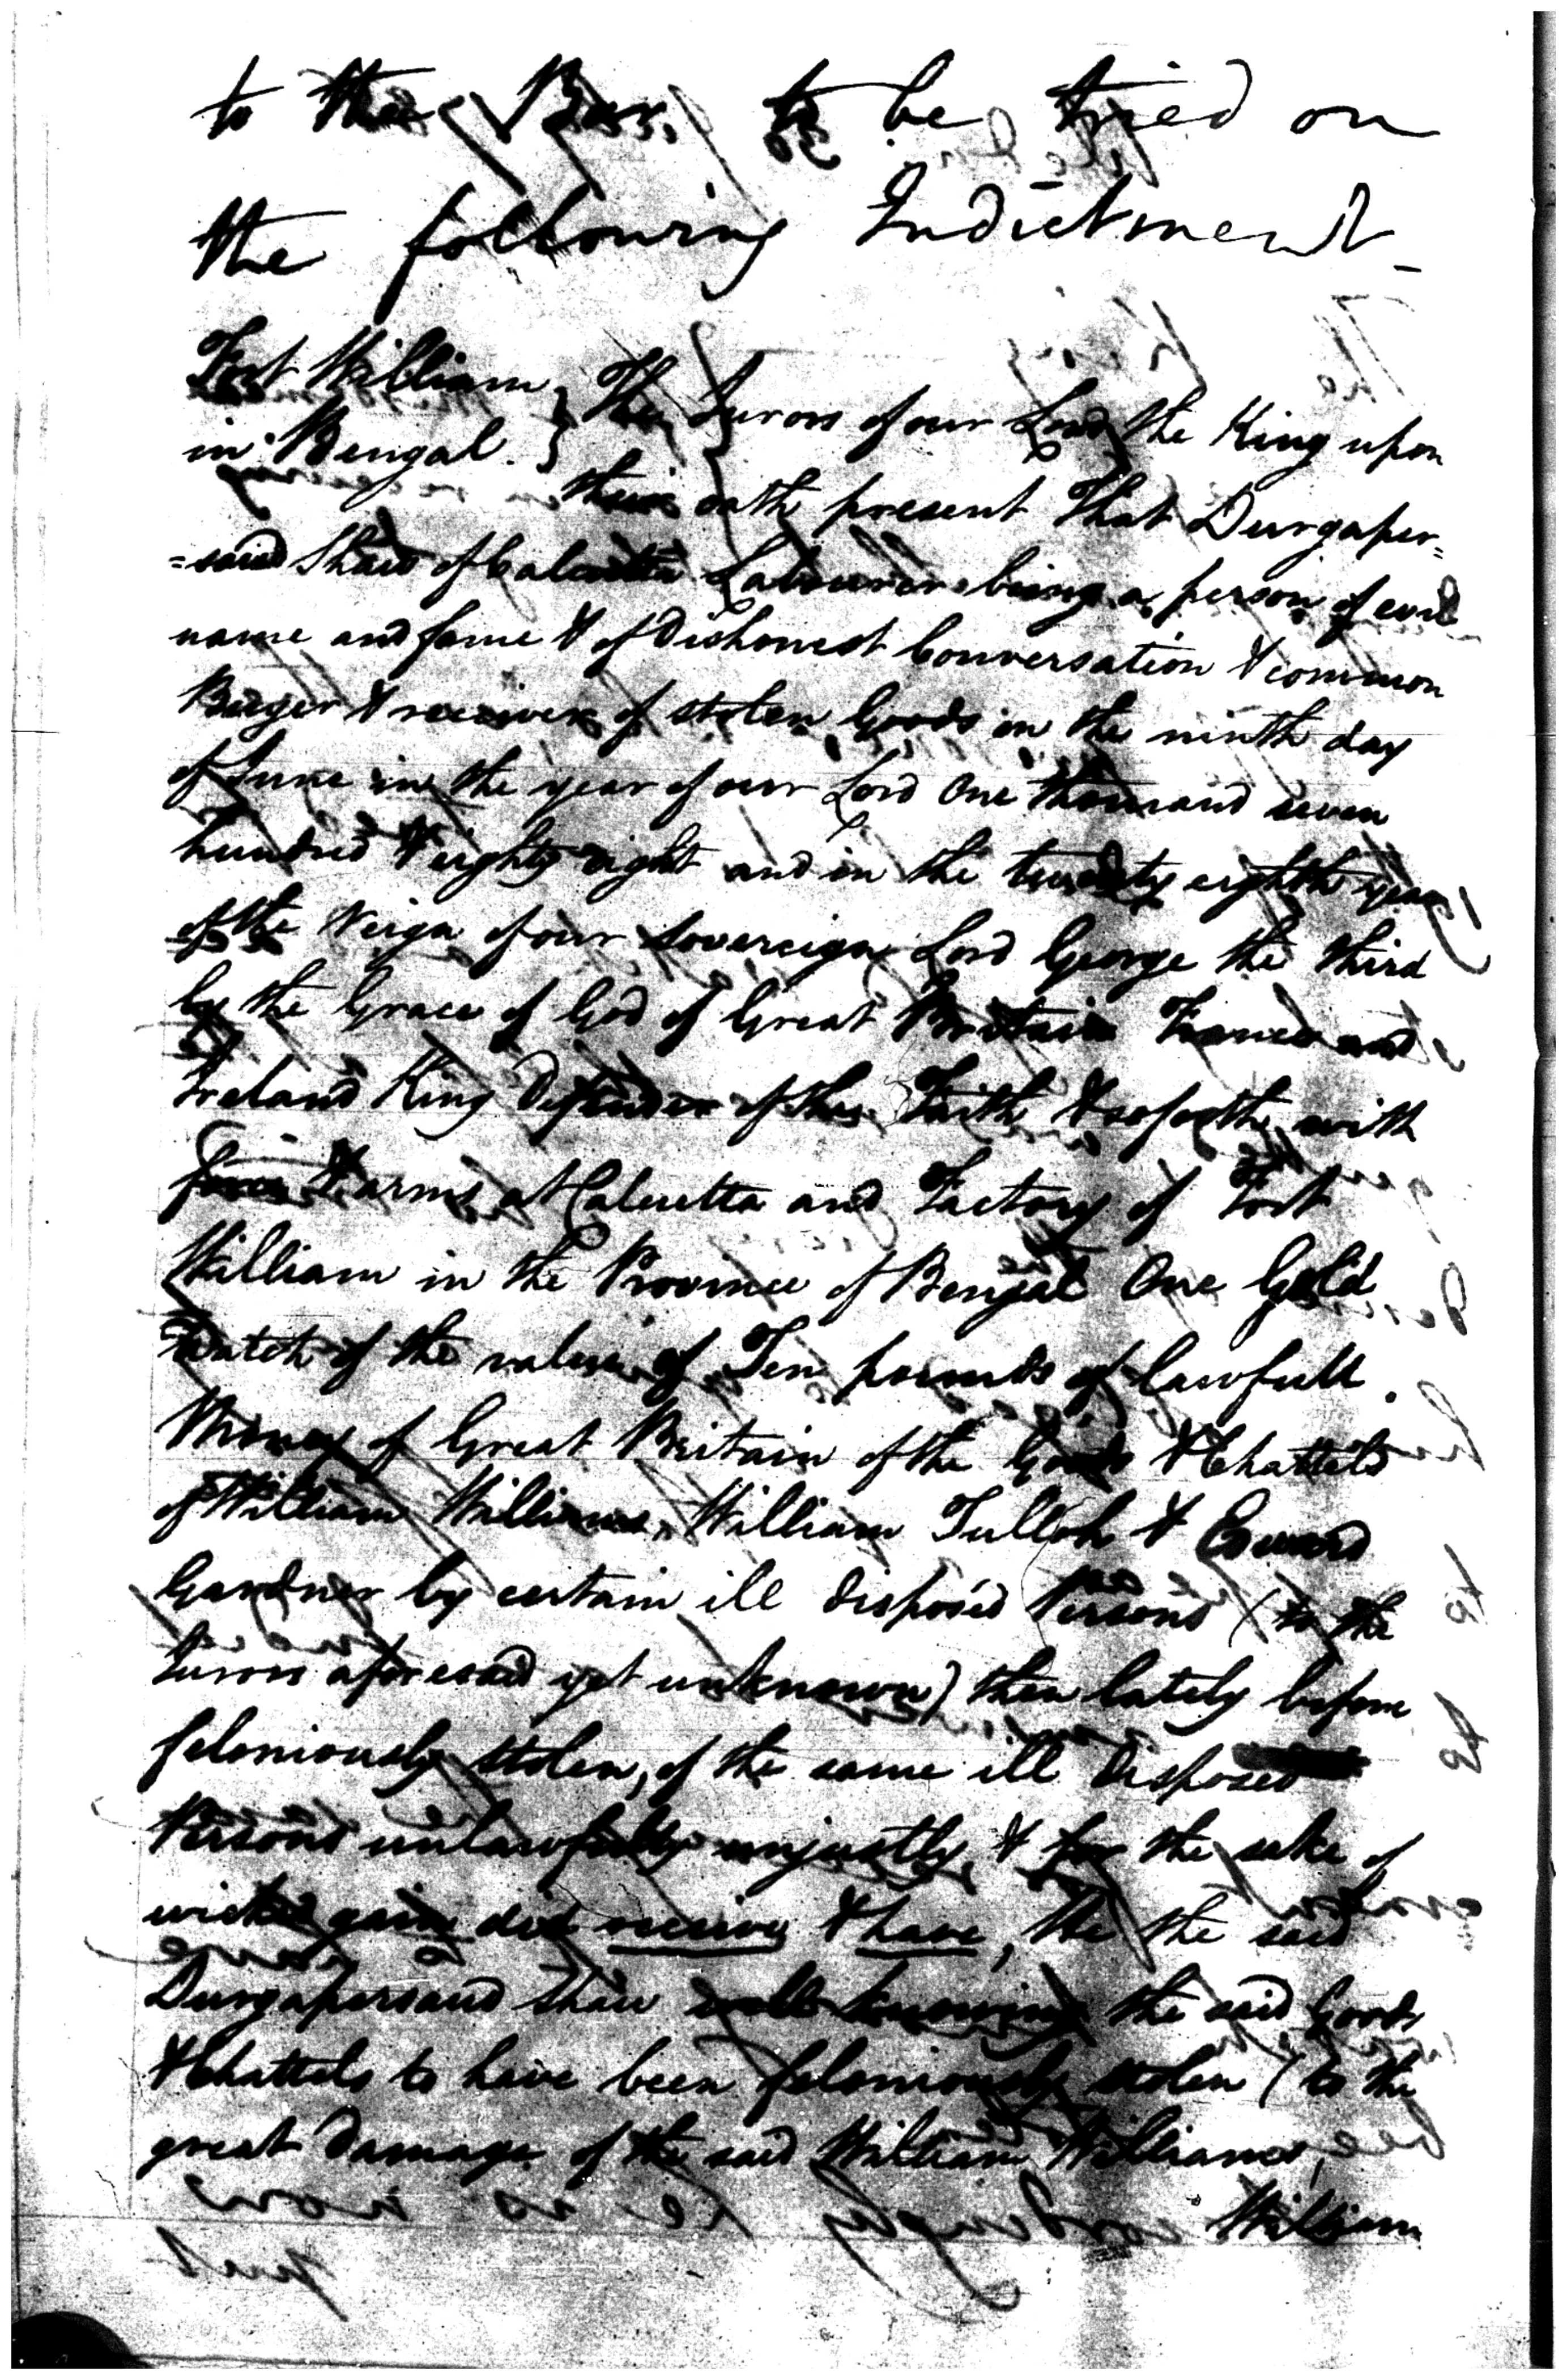 to the Bar, to be tried on
the following Indictment_
Fort William } The Jurors of our Lord the King upon
in Bengal. } their oath present That Durgaper=
=saud Shaw of Calcutta Labourer being a person of evil
name and fame & of dishonest Conversation & common
Buyer & receiver of stolen Goods on the ninth day
of June in the year of our Lord One thousand seven
hundred & eighty eight and in the twenty eighth year
of the Reign of our Sovereign Lord George the third
by the Grace of God of Great Britain France and
Ireland King Defender of the Faith & soforth with
force & arms at Calcutta and Factory of Fort
William in the Province of Bengal One Gold
Watch of the value of Ten pounds of lawfull
Money of Great Britain of the Goods & Chattels
of William Williams, William Tulloh & Edward
Gardner by certain ill disposed Persons (to the
Jurors aforesaid yet unknown) then lately before
feloniously stolen, of the same ill disposed
Persons unlawfully unjustly & for the sake of
wicked gain did receive & have, the the said
Durgapersaud Shaw well knowing the said Goods
& Chattels to have been feloniously stolen (to the
great damage of the said William Williams,
William